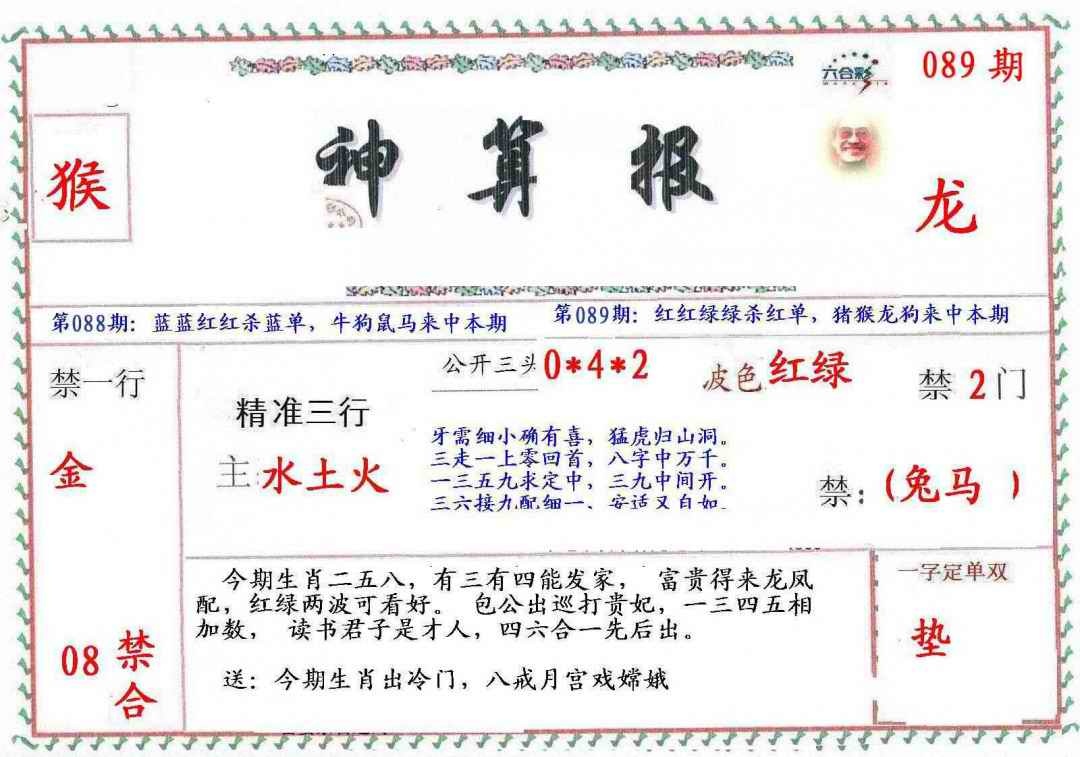 六合彩
089 期
猴
神算报
龙
第088期：蓝蓝红红杀蓝单，牛狗鼠马来中本期
第089期：红红绿绿杀红单，猪猴龙狗来中本期
禁一行
金
08 禁合
精准三行
主 水土火
公开三头 0*4*2
波色 红绿
禁 2 门
牙需细小确有喜，猛虎归山洞。
三走一上零回首，八字中万千。
一三五九求定中，三九中间开。
三六接九配细一、安适又自如
禁：(兔马 )
今期生肖二五八，有三有四能发家， 富贵得来龙凤
配，红绿两波可看好。 包公出巡打贵妃，一三四五相
加数， 读书君子是才人，四六合一先后出。
送：今期生肖出冷门，八戒月宫戏嫦娥
一字定单双
垫